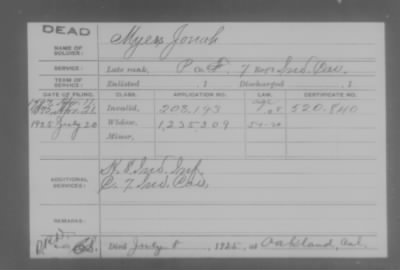 DEAD
NAME OF SOLDIER: Myers Jonah
SERVICE: Late rank, P Co. F, 7 Reg't Ind. Cav.
TERM OF SERVICE: Enlisted , 1 Discharged , 1
DATE OF FILING. CLASS. APPLICATION NO. LAW. CERTIFICATE NO.
Invalid, 203,193 520.840
1925 July 20 Widow, 1,235209
Minor,
ADDITIONAL SERVICES: K. 8. Ind. Inf.
C. 7 Ind. Cav.
REMARKS:
Died July 8, 1925, at Oakland, Cal.